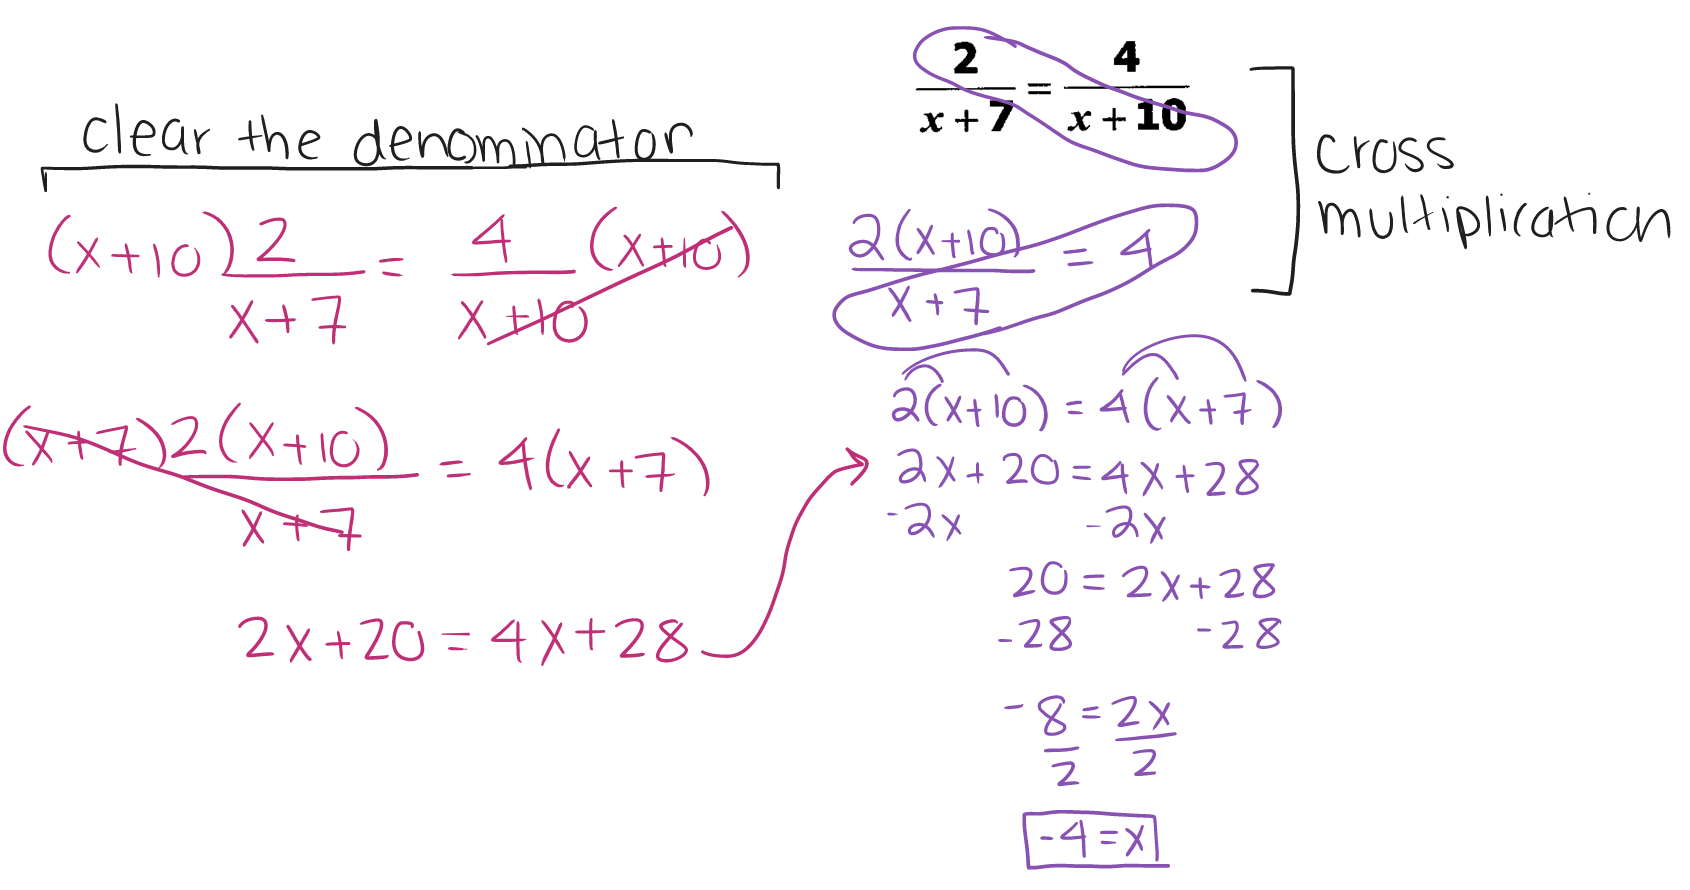 clear the denominator
(x+10) 2/x+7 = 4/x+10 (x+10)
(x+7)2(x+10)/x+7 = 4(x+7)
2x+20 = 4x+28
2/x+7 = 4/x+10
2(x+10)/x+7 = 4
cross
multiplication
2(x+10) = 4(x+7)
2x+20 = 4x+28
-2x -2x
20 = 2x+28
-28 -28
-8/2 = 2x/2
-4=x